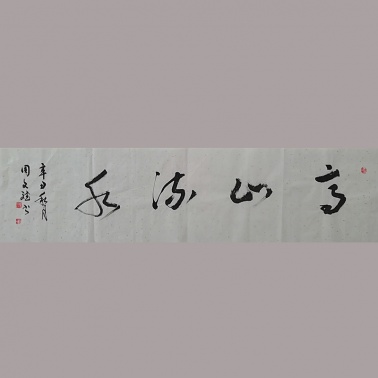 高山流水
辛丑秋月
周文	书